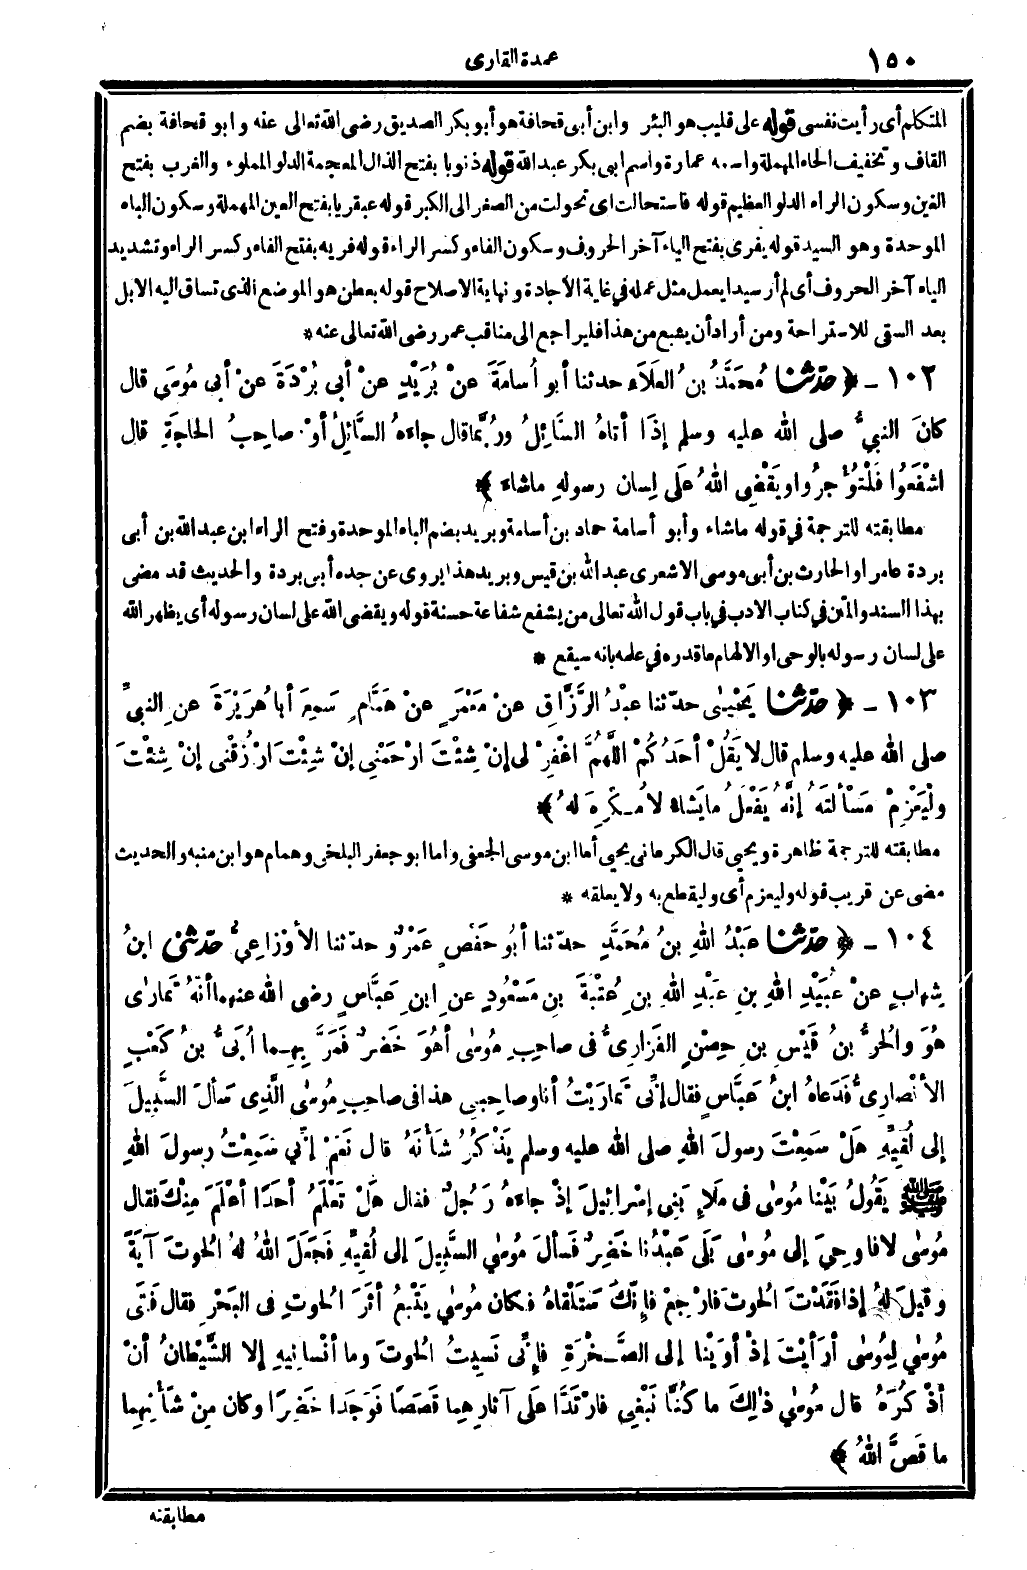 ١٥٠
عمدة القارى
المتكلم أى رأيت نفسى قوله على قليب هو البئر وابن أبى قحافة هو أبو بكر الصديق رضى الله تعالى عنه وابو قحافة بضم
القاف وتخفيف الحاء المهملة واسمه عمارة واسم ابى بكر عبد الله قوله ذنوبا بفتح الذال المعجمة الدلو المملوء والغرب بفتح
الغين وسكون الراء الدلو العظيم قوله فاستحالت اى تحولت من الصغر الى الكبر قوله عبقريا بفتح العين المهملة وسكون الباء
الموحدة وهو السيد قوله يفرى بفتح الياء آخر الحروف وسكون الفاء وكسر الراء قوله فريه بفتح الفاء وكسر الراء وتشديد
الياء آخر الحروف أى لم أر سيدا يعمل مثل عمله في غاية الأجادة ونهاية الاصلاح قوله بعطن هو الموضع الذى تساق اليه الابل
بعد السقى للاستراحة ومن أراد أن يشبع من هذا فليراجع الى مناقب عمر رضى الله تعالى عنه *
١٠٢ - ﴿ حدّثنا مُحَمَّدُ بنُ العَلَاءِ حدثنا أبو أُسامَةَ عنْ بُرَيْدٍ عنْ أبى بُرْدَةَ عنْ أبى مُوسَى قال
كانَ النبىُّ صلى الله عليه وسلم إذَا أتاهُ السَّائِلُ ورُبَّما قال جاءَهُ السَّائِلُ أوْ صاحِبُ الحاجَةِ قال
اشْفَعُوا فَلْتُؤْجرُوا ويَقْضِى اللهُ عَلَى لِسانِ رسولهِ ماشاءَ ﴾
مطابقته للترجمة في قوله ماشاء وأبو أسامة حماد بن أسامة وبريد بضم الباء الموحدة وفتح الراء ابن عبد الله بن أبى
بردة عامر او الحارث بن أبى موسى الاشعرى عبد الله بن قيس وبريد هذا يروى عن جده أبى بردة والحديث قد مضى
بهذا السند والمتن في كتاب الادب في باب قول الله تعالى من يشفع شفاعة حسنة قوله ويقضى الله على لسان رسوله أى يظهر الله
على لسان رسوله بالوحى او الالهام ما قدره في علمه بانه سيقع *
١٠٣ - ﴿ حدّثنا يَحْيىٰ حدّثنا عبْدُ الرَّزَّاقِ عنْ مَعْمَرٍ عنْ هَمَّامٍ سَمِعَ أبا هُرَيْرَةَ عنِ النبىِّ
صلى الله عليه وسلم قال لا يَقُلْ أحَدُكُمْ اللَّهُمَّ اغْفِرْ لى إنْ شِئْتَ ارْحَمْنِى إنْ شِئْتَ ارْزُقْنى إنْ شِئْتَ
ولْيَعْزِمْ مَسْألَتَهُ إنَّهُ يَفْعَلُ ما يَشاءُ لا مُكْرِهَ لهُ ﴾
مطابقته للترجمة ظاهرة ويحيى قال الكرمانى يحيى أما ابن موسى الجعفى واما ابو جعفر البلخى وهمام هو ابن منبه والحديث
مضى عن قريب قوله وليعزم أى وليقطع به ولا يعلقه *
١٠٤ - ﴿ حدّثنا عبْدُ اللهِ بنُ مُحَمَّدٍ حدّثنا أبُو حَفْصٍ عَمْرٌو حدّثنا الأوْزاعِىُّ حدّثنى ابنُ
شِهابٍ عنْ عُبَيْدِ اللهِ بنِ عبْدِ اللهِ بنِ عُتْبَةَ بنِ مَسْعُودٍ عنِ ابنِ عَبَّاسٍ رضى الله عنهما أنَّهُ تَمارَى
هُوَ والْحُرُّ بنُ قَيْسِ بنِ حِصْنٍ الفَزارىُّ فى صاحِبِ مُوسَى أهُوَ خَضِرٌ فَمَرَّ بِهِما أُبَىُّ بنُ كَعْبٍ
الأنْصارىُّ فَدَعاهُ ابنُ عَبَّاسٍ فقال إنِّى تَمارَيْتُ أنا وصاحِبى هذا فى صاحِبِ مُوسَى الَّذِى سَألَ السَّبِيلَ
إلى لُقِيِّهِ هَلْ سَمِعْتَ رسولَ اللهِ صلى الله عليه وسلم يَذْكُرُ شأنَهُ قال نَعَمْ إنِّي سَمِعْتُ رسولَ اللهِ
ﷺ يَقُولُ بَيْنا مُوسَى فى مَلَإِ بَنِى إسْرائِيلَ إذْ جاءَهُ رَجُلٌ فقال هَلْ تَعْلَمُ أحَدًا أعْلَمَ مِنْكَ فقال
مُوسَى لا فاوحِىَ إلى مُوسَى بَلَى عَبْدُنا خَضِرٌ فَسألَ مُوسَى السَّبِيلَ إلى لُقِيِّهِ فَجَعَلَ اللهُ لهُ الْحُوتَ آيَةً
وقِيلَ لهُ إذا فَقَدْتَ الْحُوتَ فارْجِعْ فإنَّكَ سَتَلْقاهُ فكان مُوسَى يَتْبَعُ أثَرَ الْحُوتِ فى البَحْرِ فقال فَتَى
مُوسَى لِمُوسَى أرَأيْتَ إذْ أوَيْنا إلى الصَّخْرَةِ فإنِّى نَسِيتُ الْحُوتَ وما أنْسانِيهِ إلا الشَّيْطانُ أنْ
أذْكُرَهُ قال مُوسَى ذٰلِكَ ما كُنَّا نَبْغِى فارْتَدَّا عَلَى آثارِهِما قَصَصًا فَوَجَدَا خَضِرًا وكان مِنْ شأنِهِما
ما قَصَّ اللهُ ﴾
مطابقته